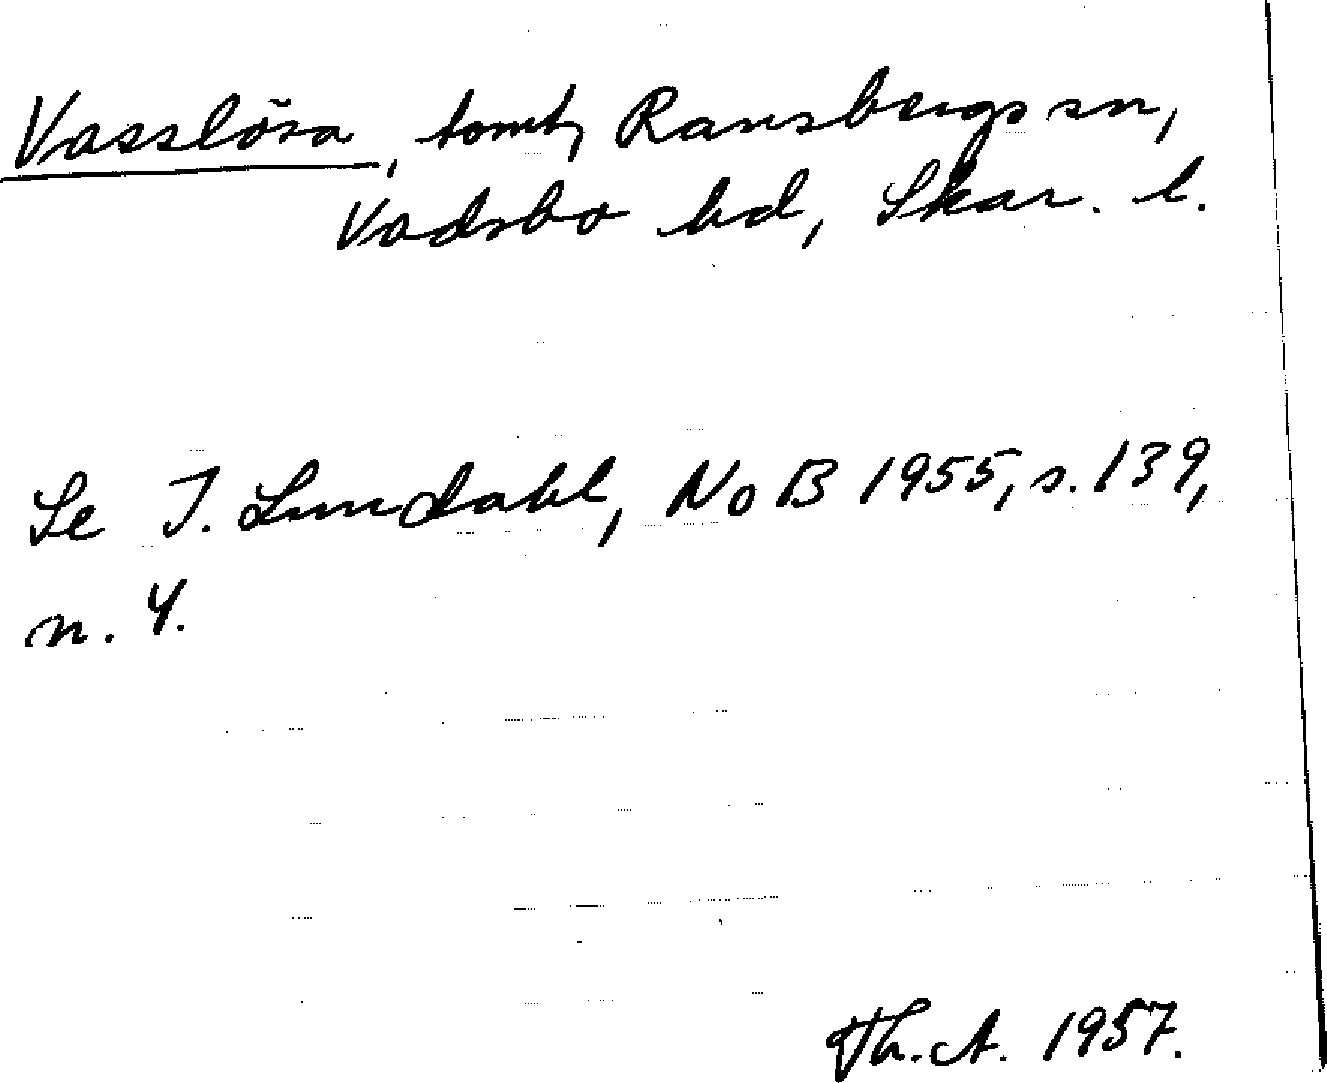 Vasslösa, tomt, Ransbergs sn,
Vadsbo hd, Skar. l.
Se I. Lundahl, NoB 1955, s. 139,
n. 4.
Th. A. 1957.